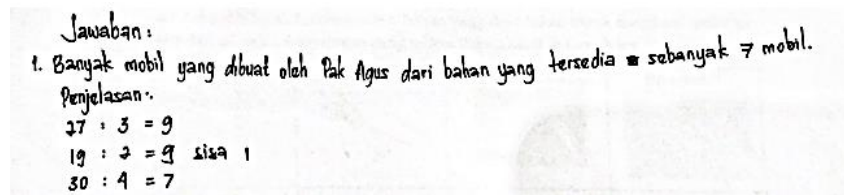 Jawaban:
1. Banyak mobil yang dibuat oleh Pak Agus dari bahan yang tersedia sebanyak 7 mobil.
Penjelasan:
27 : 3 = 9
19 : 2 = 9 sisa 1
30 : 4 = 7